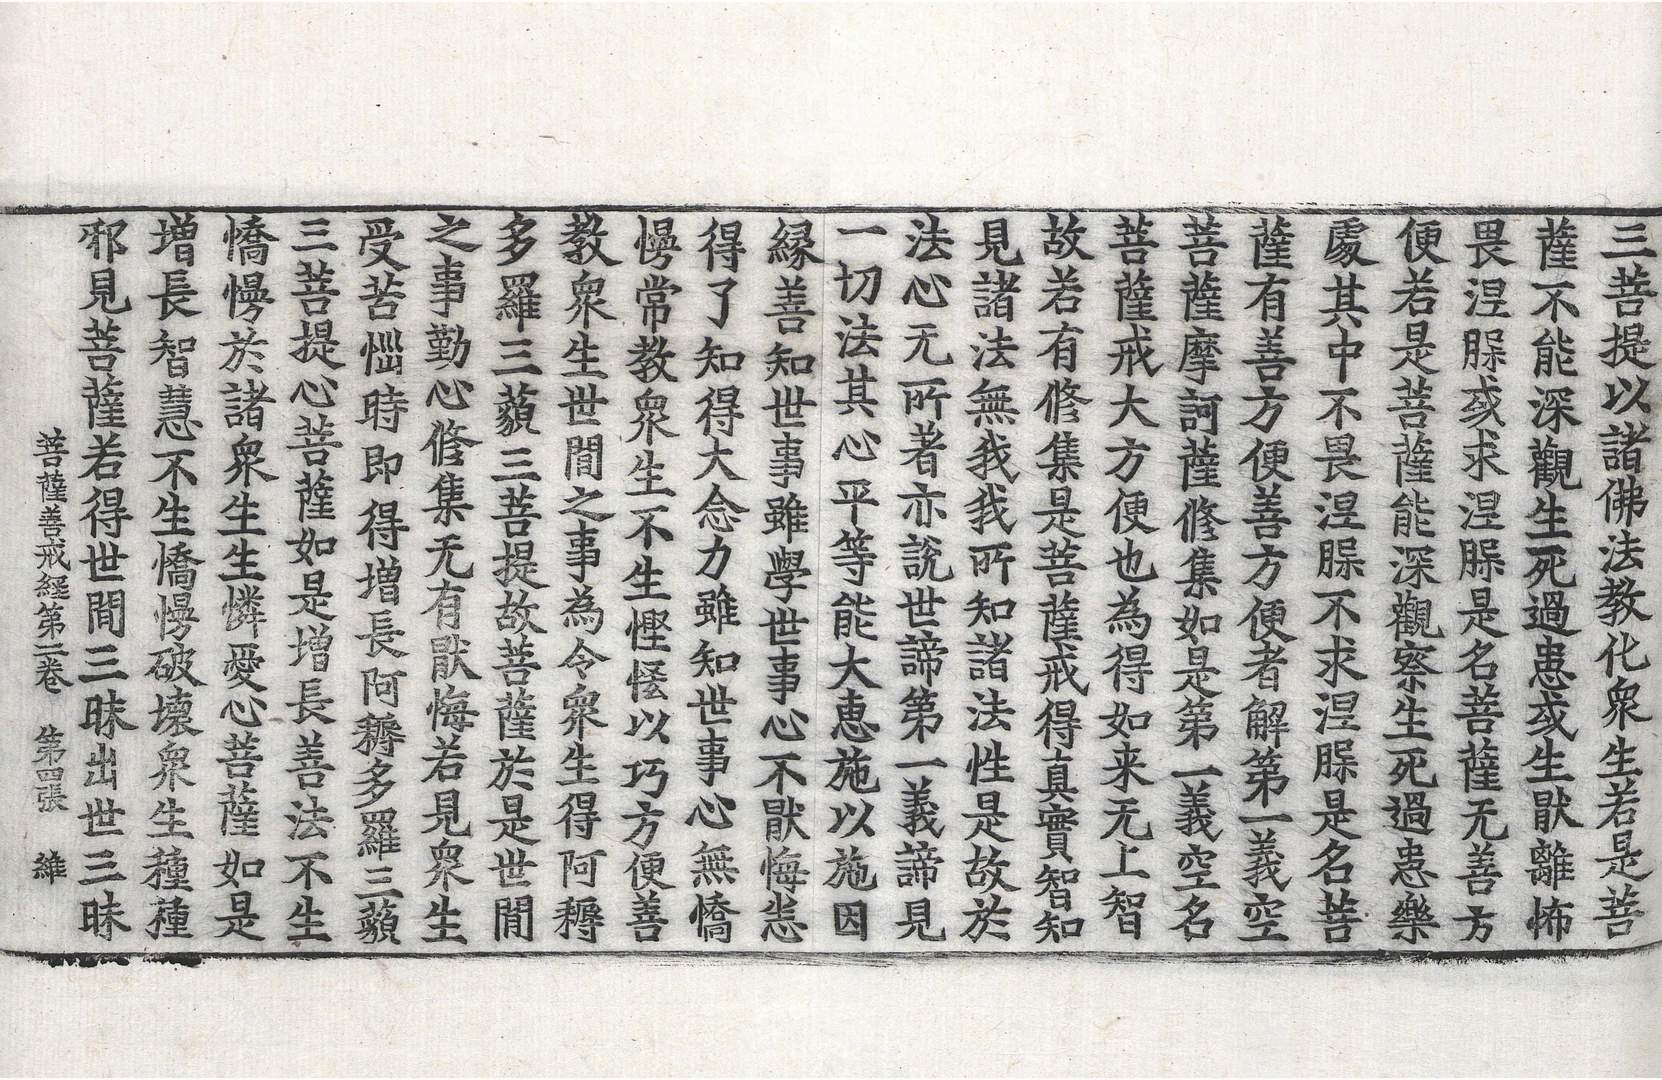 三菩提以諸佛法教化衆生若是菩
薩不能深觀生死過患或生猒離怖
畏涅槃或求涅槃是名菩薩无善方
便若是菩薩能深觀察生死過患樂
處其中不畏涅槃不求涅槃是名菩
薩有善方便善方便者解第一義空
菩薩摩訶薩修集如是第一義空名
菩薩戒大方便也為得如来无上智
故若有修集是菩薩戒得真實智知
見諸法無我我所知諸法性是故於
法心无所著亦說世諦第一義諦見
一切法其心平等能大恵施以施因
縁善知世事雖學世事心不猒悔恙
得了知得大念力雖知世事心無憍
慢常教衆生不生慳悋以巧方便善
教衆生世間之事為令衆生得阿耨
多羅三藐三菩提故菩薩於是世間
之事勤心修集无有猒悔若見衆生
受苦惱時即得增長阿耨多羅三藐
三菩提心菩薩如是增長善法不生
憍慢於諸衆生生憐愛心菩薩如是
增長智慧不生憍慢破壞衆生種種
邪見菩薩若得世間三昧出世三昧
菩薩善戒經第二卷 第四張 維